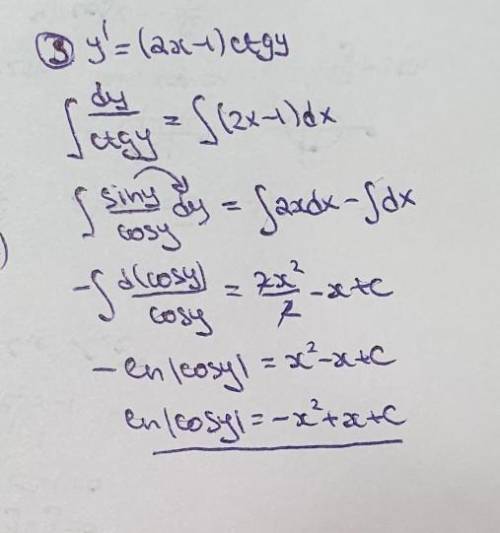 ③ y' = (2x-1)ctgy
∫ dy/ctgy = ∫(2x-1)dx
∫ siny/cosy dy = ∫2xdx - ∫dx
-∫ d(cosy)/cosy = 2x²/2 - x+c
- ln|cosy| = x²-x+c
ln|cosy| = -x²+x+c